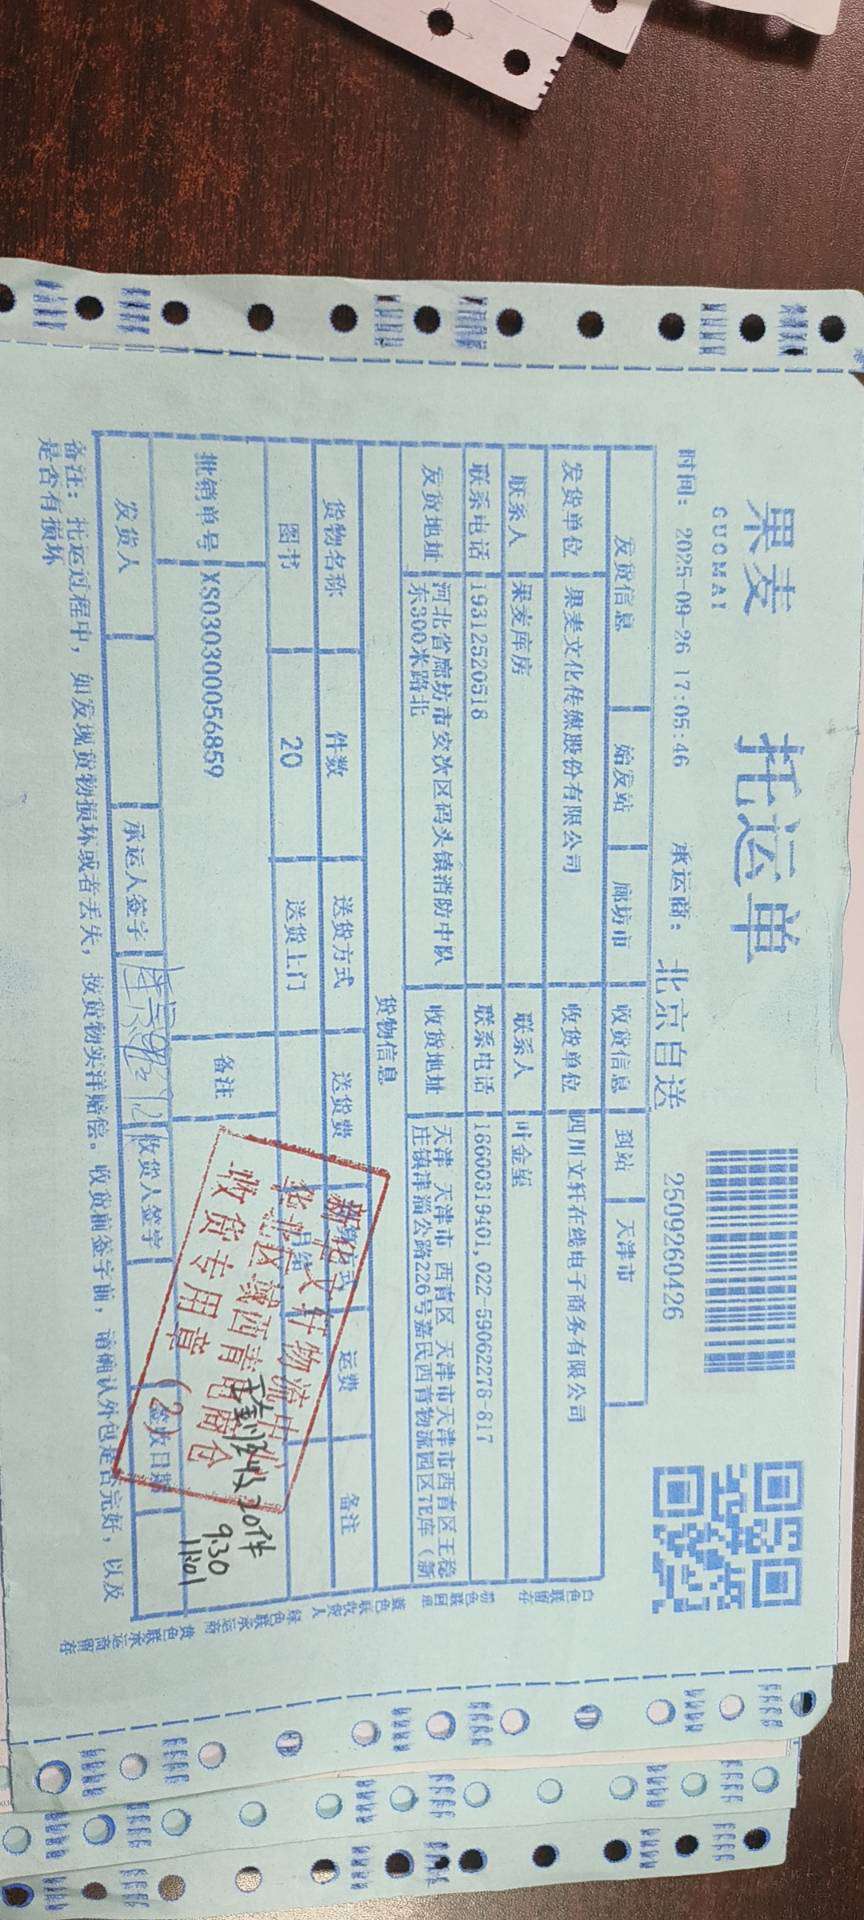 果麦
GUOMAI
托运单
时间: 2025-09-26 17:05:46 承运商: 北京自送 2509260426
发货信息 始发站 廊坊市 收货信息 到站 天津市
发货单位 果麦文化传媒股份有限公司 收货单位 四川文轩在线电子商务有限公司
联系人 果麦库房 联系人 叶金星
联系电话 19312520518 联系电话 18600319401,022-59062278-817
发货地址 河北省廊坊市安次区码头镇消防中队东300米路北 收货地址 天津 天津市 西青区 天津市天津市西青区王稳庄镇津淄公路226号嘉民西青物流园区7E库（新
货物信息
货物名称 件数 送货方式 送货费 运费 备注
图书 20 送货上门
批销单号 XS030300056859 备注
发货人 承运人签字 收货人签字 签收日期
备注: 托运过程中, 如发现货物损坏或者丢失, 按货物实详赔偿。收货前签字前, 请确认外包是否完好, 以及
是否有损坏
白色联留存
粉色联回单
蓝色联收货人
绿色联承运商
黄色联承运商留存
新华文轩物流中心
华北区域西青电商仓
收货专用章
(2)
实收20件
9.30
11:01